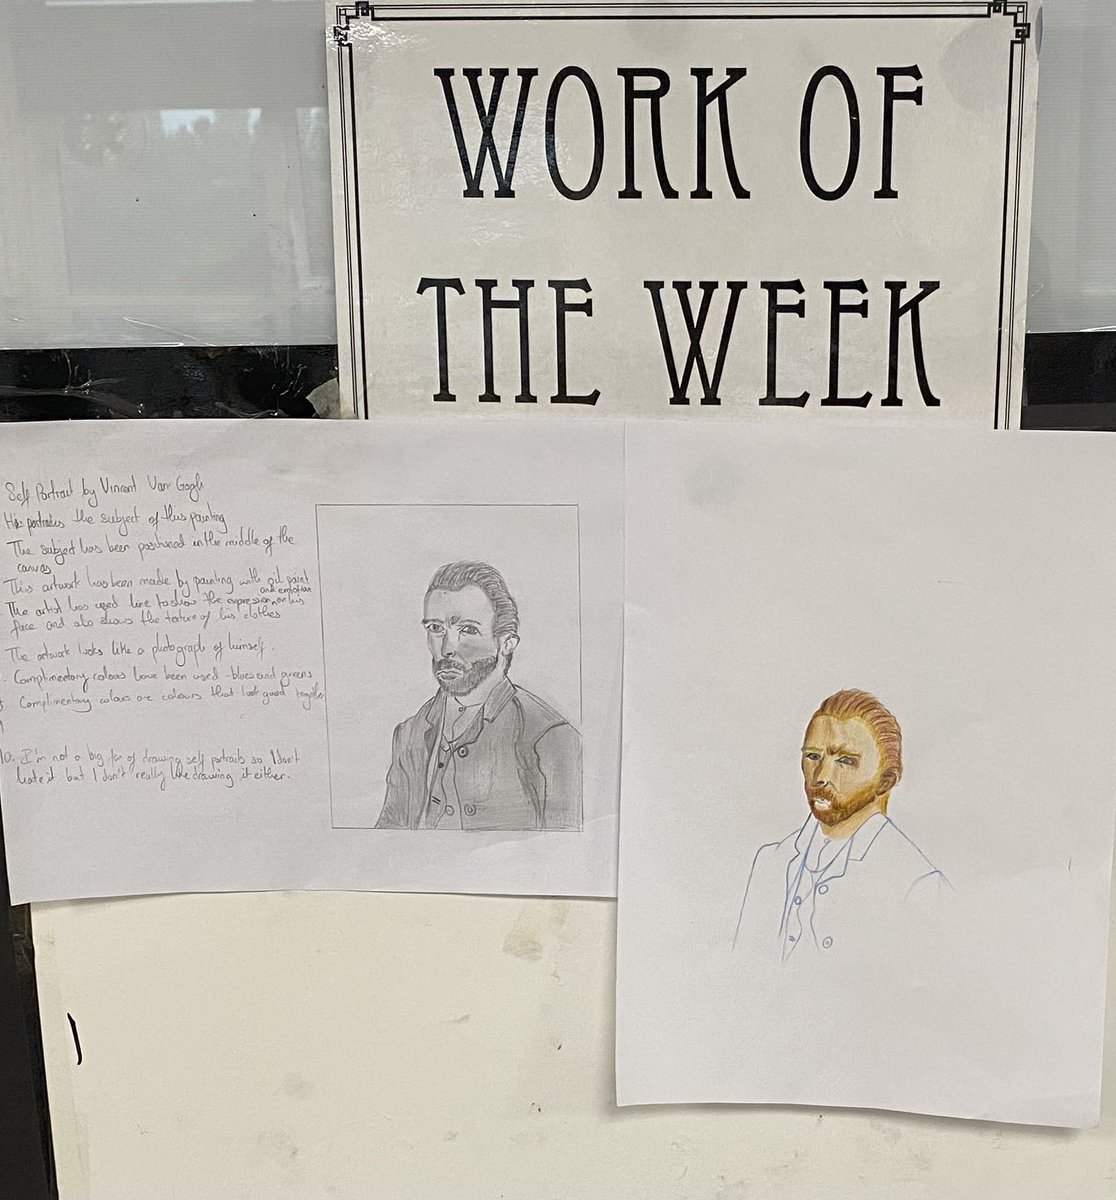 WORK OF
THE WEEK
Self Portrait by Vincent Van Gogh
the subject of this painting
The subject has been positioned in the middle of the
canvas
This artwork has been made by painting with oil paint
and emotion
The artist has used line to show the expression on his
face and also shows the texture of his clothes
The artwork looks like a photograph of himself.
Complimentary colours have been used - blues and greens
Complimentary colous are colours that look good together
10. I'm not a big fan of drawing self portraits so I don't
hate it but I don't really like drawing it either.